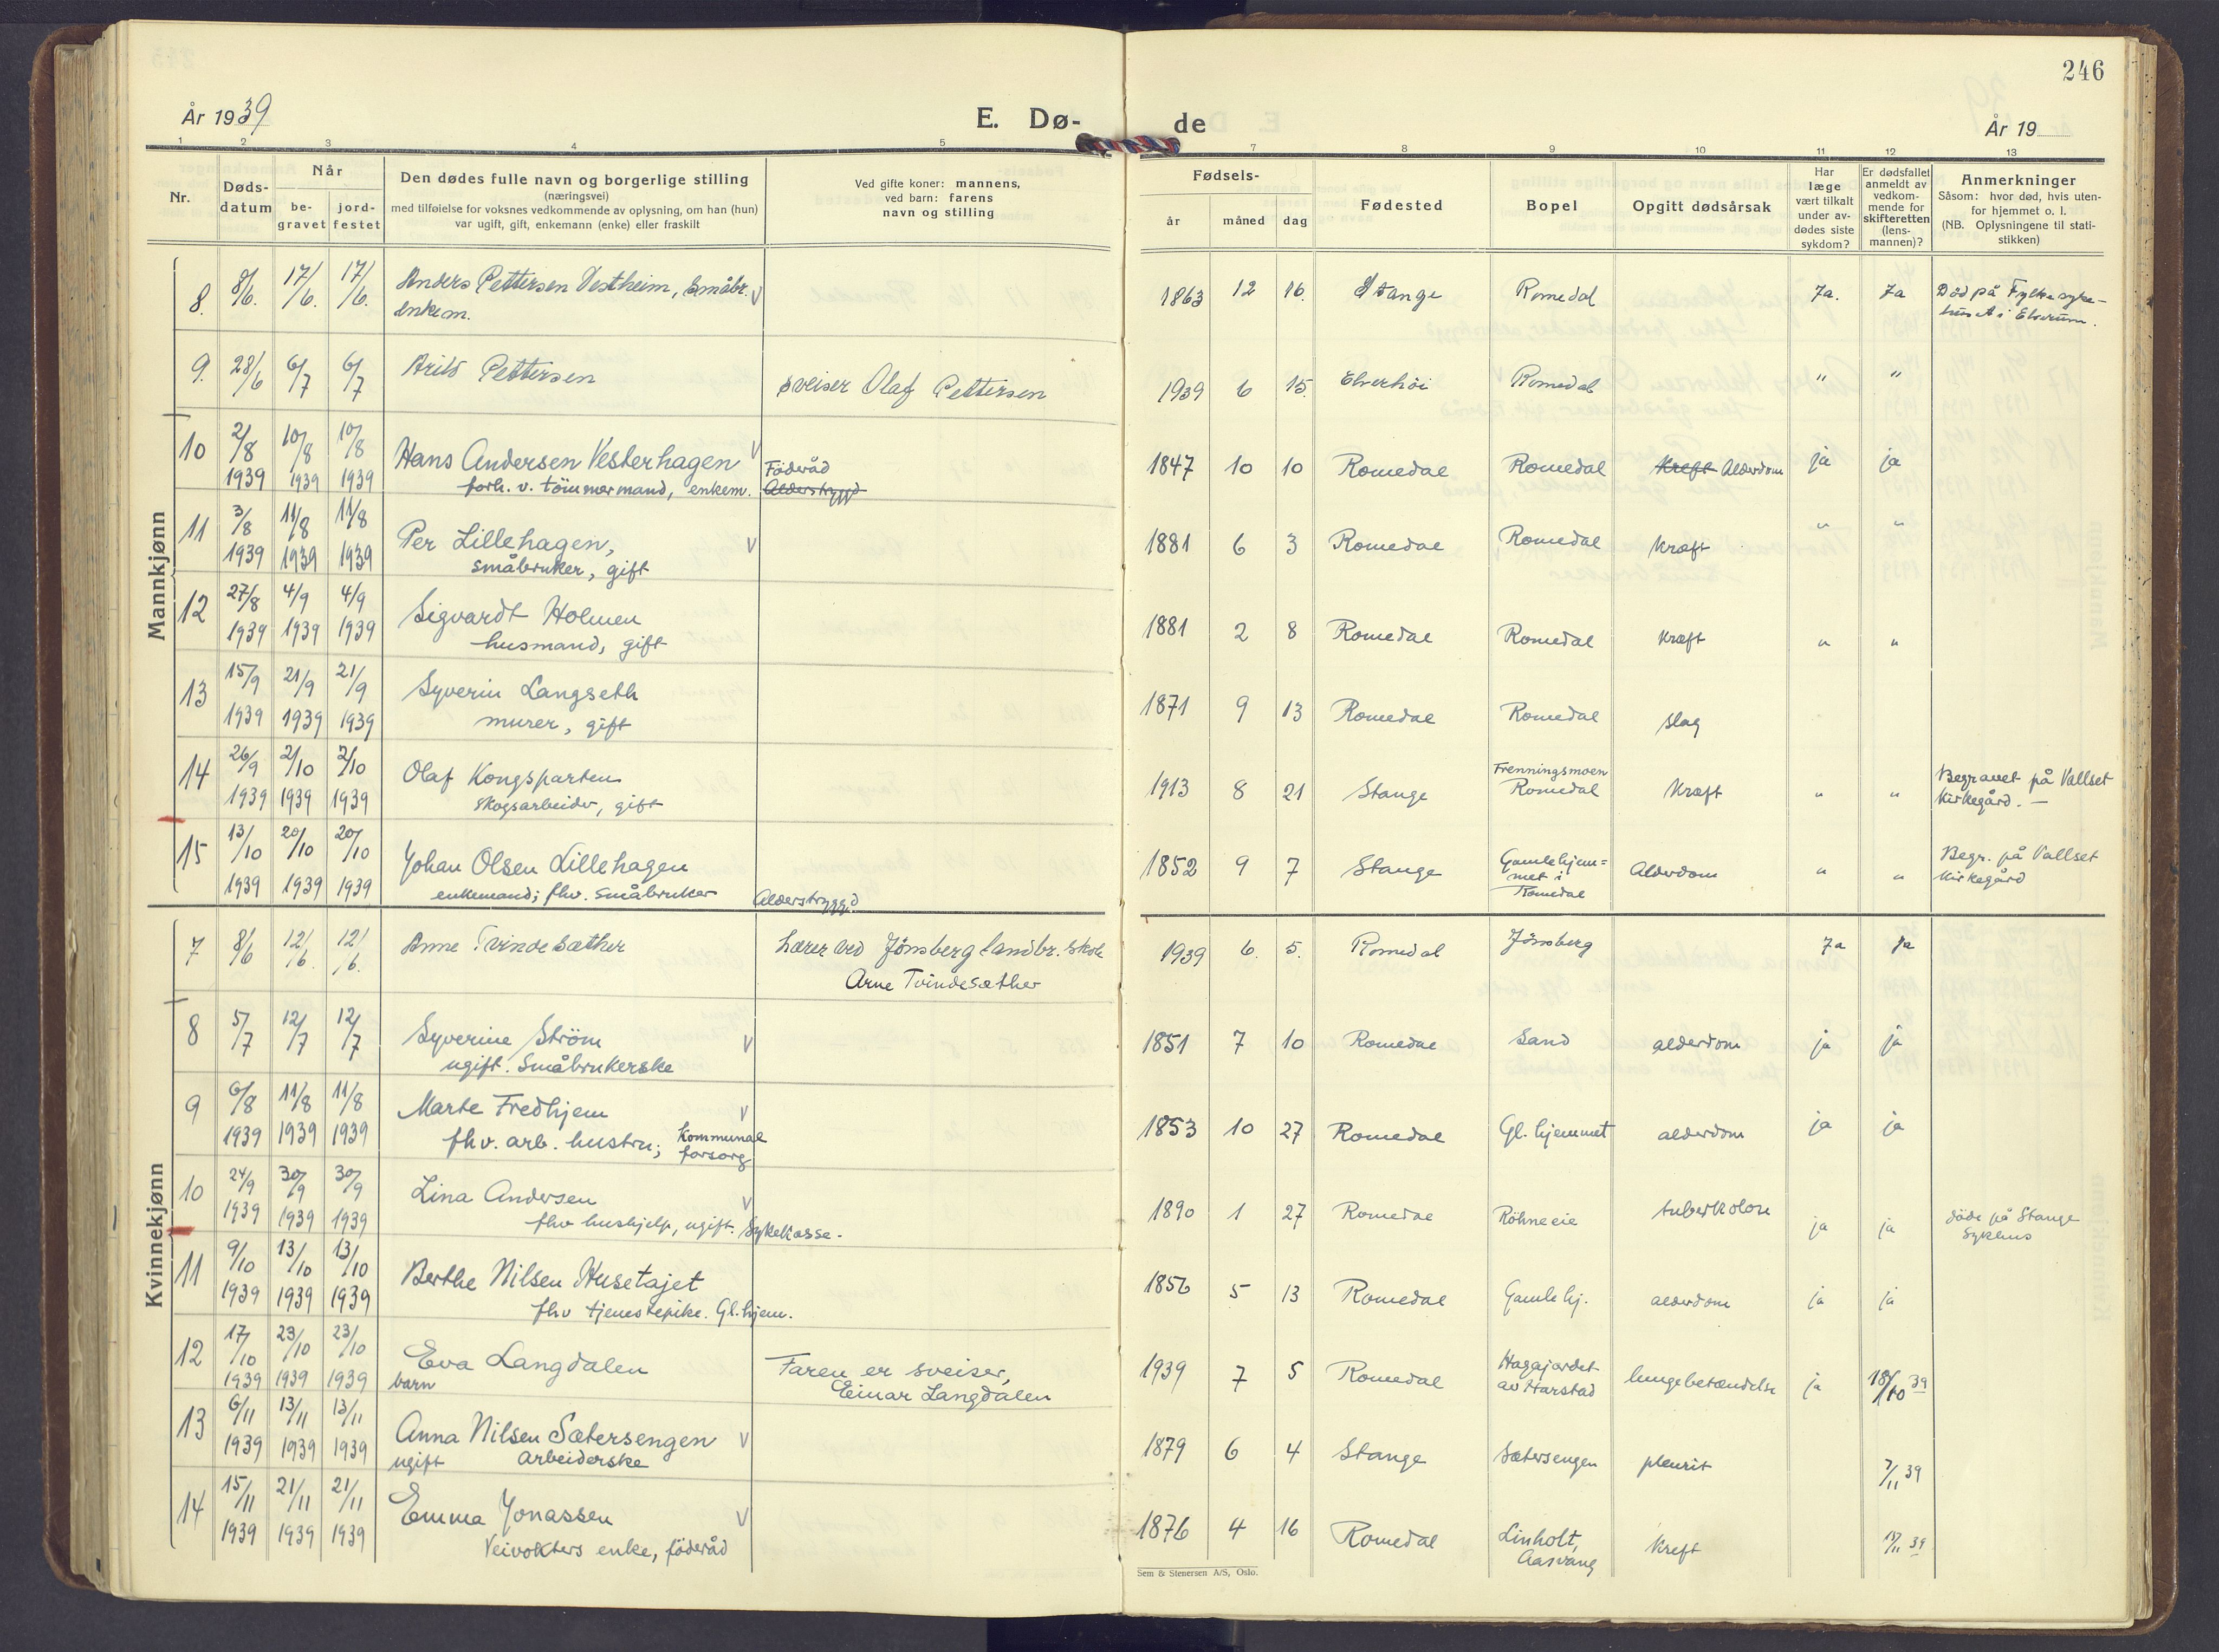 246
År 1939
E. Dø-
de
År 19
1 2 3 4 5 7 8 9 10 11 12 13
Nr.
Døds-
datum
Når
be-
gravet
jord-
festet
Den dødes fulle navn og borgerlige stilling
(næringsvei)
med tilføielse for voksnes vedkommende av oplysning, om han (hun)
var ugift, gift, enkemann (enke) eller fraskilt
Ved gifte koner: mannens,
ved barn: farens
navn og stilling
Fødsels-
år måned dag
Fødested
Bopel
Opgitt dødsårsak
Har
læge
vært tilkalt
under av-
dødes siste
sykdom?
Er dødsfallet
anmeldt av
vedkom-
mende for
skifteretten
(lens-
mannen)?
Anmerkninger
Såsom: hvor død, hvis uten-
for hjemmet o. l.
(NB. Oplysningene til stati-
stikken)
Mannkjønn
8. 8/6. 17/6. 17/6. Anders Pettersen Vestheim, Småbr. V 1863 12 16. Stange Romedal Ja. Ja Død på Fylkesyke-
enkem. huset i Elverum.
9. 28/6 6/7 6/7 Arild Pettersen sveiser Olaf Pettersen 1939 6 15. Elverhöi Romedal " "
10 2/8 10/8 10/8 Hans Andersen Vesterhagen V Föderåd 1847 10 10 Romedal Romedal Kreft Alderdom ja ja
1939 1939 1939 forh. v. tömmermand, enkem. Alderstrygd
11 3/8 11/8 11/8 Per Lillehagen, V 1881 6 3 Romedal Romedal Kræft " "
1939 1939 1939 småbruker, gift
12 27/8 4/9 4/9 Sigvardt Holmen 1881 2 8 Romedal Romedal Kræft " "
1939 1939 1939 husmand, gift
13 15/9 21/9 21/9 Syverin Langseth 1871 9 13 Romedal Romedal slag
1939 1939 1939 murer, gift
14 26/9 2/10 2/10 Olaf Kongsparten 1913 8 21 Stange Frenningsmoen Romedal Kræft " " Begravet på Vallset
1939 1939 1939 skogsarbeider, gift Kirkegård. —
15 13/10 20/10 20/10 Johan Olsen Lillehagen 1852 9 7 Stange Gamlehjem=
met i
Romedal Alderdom " " Begr. på Vallset
Kirkegård
1939 1939 1939 enkemand; fhv. Småbruker Alderstrygd
Kvinnekjønn
7 8/6 12/6 12/6. Anne Tvindesæther Lærer ved Jönsberg landbr. skole 1939 6. 5. Romedal Jönsberg Ja Ja
Arne Tvindesæther
8 5/7 12/7 12/7 Syverine Ström V 1851 7 10 Romedal Sand alderdom ja ja
ugift. Småbrukerske
9 6/8 11/8 11/8 Marte Fredhjem V 1853 10 27 Romedal Gl. hjemmet alderdom ja ja
1939 1939 1939 fhv. arb. hustru; Kommunal
forsorg
10 24/9 30/9 30/9 Lina Andersen V 1890 1 27 Romedal Röhneeie tuberkolose ja ja döde på Stange
Sykehus
1939 1939 1939 fhv hushjelp, ugift. Sykekasse.
11 9/10 13/10 13/10 Berthe Nilsen Husetajet 1856 5 13 Romedal Gamlehj. alderdom ja ja
1939 1939 1939 fhv tjenestepike. Gl. hjem.
12 17/10 23/10 23/10 Eva Langdalen Faren er sveiser, 1939 7 5 Romedal Hagajordet
av Harstad lungebetændelse ja 18/10 39
1939 1939 1939 barn Einar Langdalen
13 6/11 13/11 13/11 Anna Nilsen Sætersengen V 1879 6 4 Stange Sætersengen pleurit 7/11 39
1939 1939 1939 ugift Arbeiderske
14 15/11 21/11 21/11 Emma Jonassen V 1876 4 16 Romedal Linholt,
Aasvang Kreft /11 39
1939 1939 1939 Veivokters enke, föderåd
Sem & Stenersen A/S, Oslo.